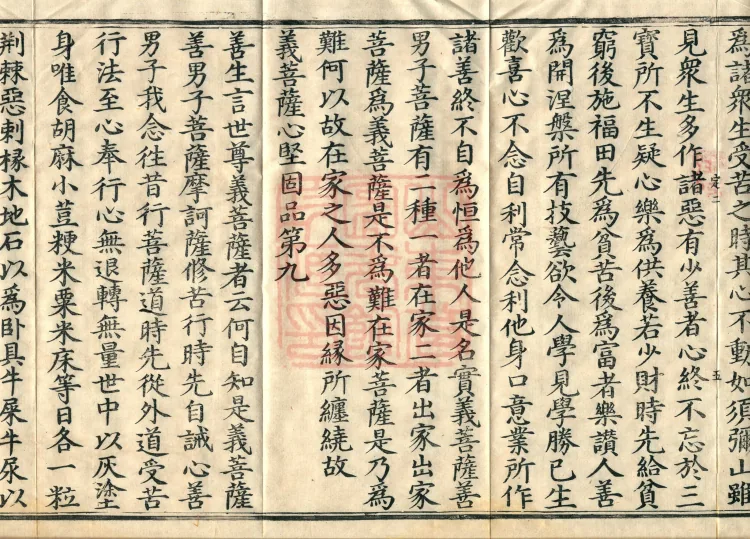 為諸眾生受苦之時其心不動如須彌山雖
定二
五
見眾生多作諸惡有少善者心終不忘於三
寶所不生疑心樂為供養若少財時先給貧
窮後施福田先為貧苦後為富者樂讚人善
為開涅槃所有技藝欲令人學見學勝已生
歡喜心不念自利常念利他身口意業所作
諸善終不自為恒為他人是名實義菩薩善
男子菩薩有二種一者在家二者出家出家
菩薩為義菩薩是不為難在家菩薩是乃為
難何以故在家之人多惡因緣所纏繞故
義菩薩心堅固品第九
善生言世尊義菩薩者云何自知是義菩薩
善男子菩薩摩訶薩修苦行時先自誡心善
男子我念往昔行菩薩道時先從外道受苦
行法至心奉行心無退轉無量世中以灰塗
身唯食胡麻小荳粳米粟米床等日各一粒
荆棘惡刺椓木地石以為臥具牛屎牛尿以